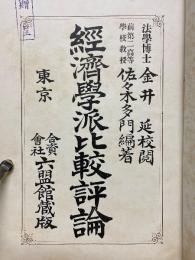 法學博士 金井 延校閲
前第二高等學校教授 佐々木多門編著
經濟學派比較評論
東京
合資會社 六盟館藏版